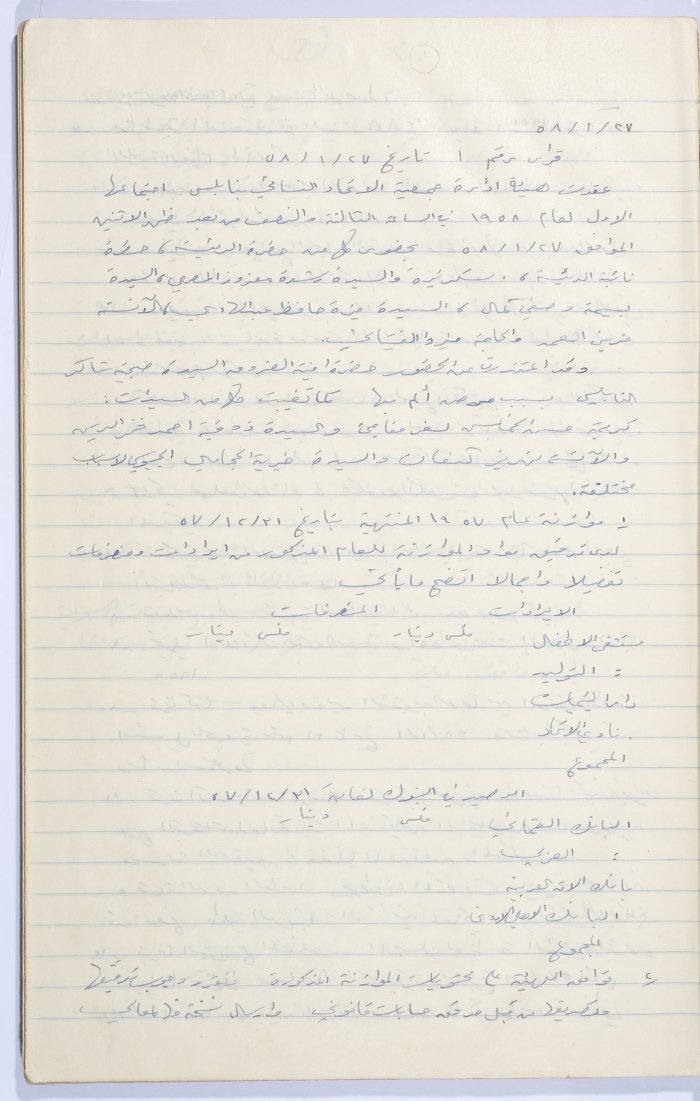 ٥٨/١/٢٧
قرار رقم ١ تاريخ ٥٨/١/٢٧
عقدت هيئة ادارة جمعية الاتحاد النسائي بنابلس اجتماعها
الاول لعام ١٩٥٨ في الساعة الثالثة والنصف من بعد ظهر الاثنين
الموافق ٥٨/١/٢٧ بحضور كل من حضرة الرئيسة، حضرة
نائبة الرئيسة، والسيدة رشدة معزوز المصري، السيدة
بسيمة وصفي كمال، السيدة فيزة حافظ عبد الهادي، الآنسة
والحاجة
وقد اعتذرت عن الحضور حضرة امينة الصندوق السيدة صبحية شاكر
النابلسي بسبب مرض ألم بها كما تغيبت كل من السيدات:
كريمة لسفر والسيدة ذوقية احمد فخر الدين
والآنسة كنعان والسيدة خيرية الحجاوي لاسباب
مختلفة.
١ موازنة عام ١٩٥٧ المنتهية بتاريخ ٥٧/١٢/٣١
لدى تدقيق مواد الموازنة للعام المذكور من ايرادات ومصروفات
تفصيلا واجمالا اتضح ما يأتي
الايرادات المصروفات
فلس دينار فلس دينار
مستشفى الاطفال
: التوليد
دار اليتيمات
نادي الاتحاد
المجموع
الرصيد في البنوك لغاية ٥٧/١٢/٣١
فلس دينار
البنك العثماني
: العربي
بانك الامة العربية
البانك الاهلي الاردني
المجموع
٢ توافق الهيئة على محتويات الموازنة المذكورة وتقرر وجوب تدقيقها
وتصديقها من قبل مدقق حسابات قانوني وارسال نسخة منها لمعالي